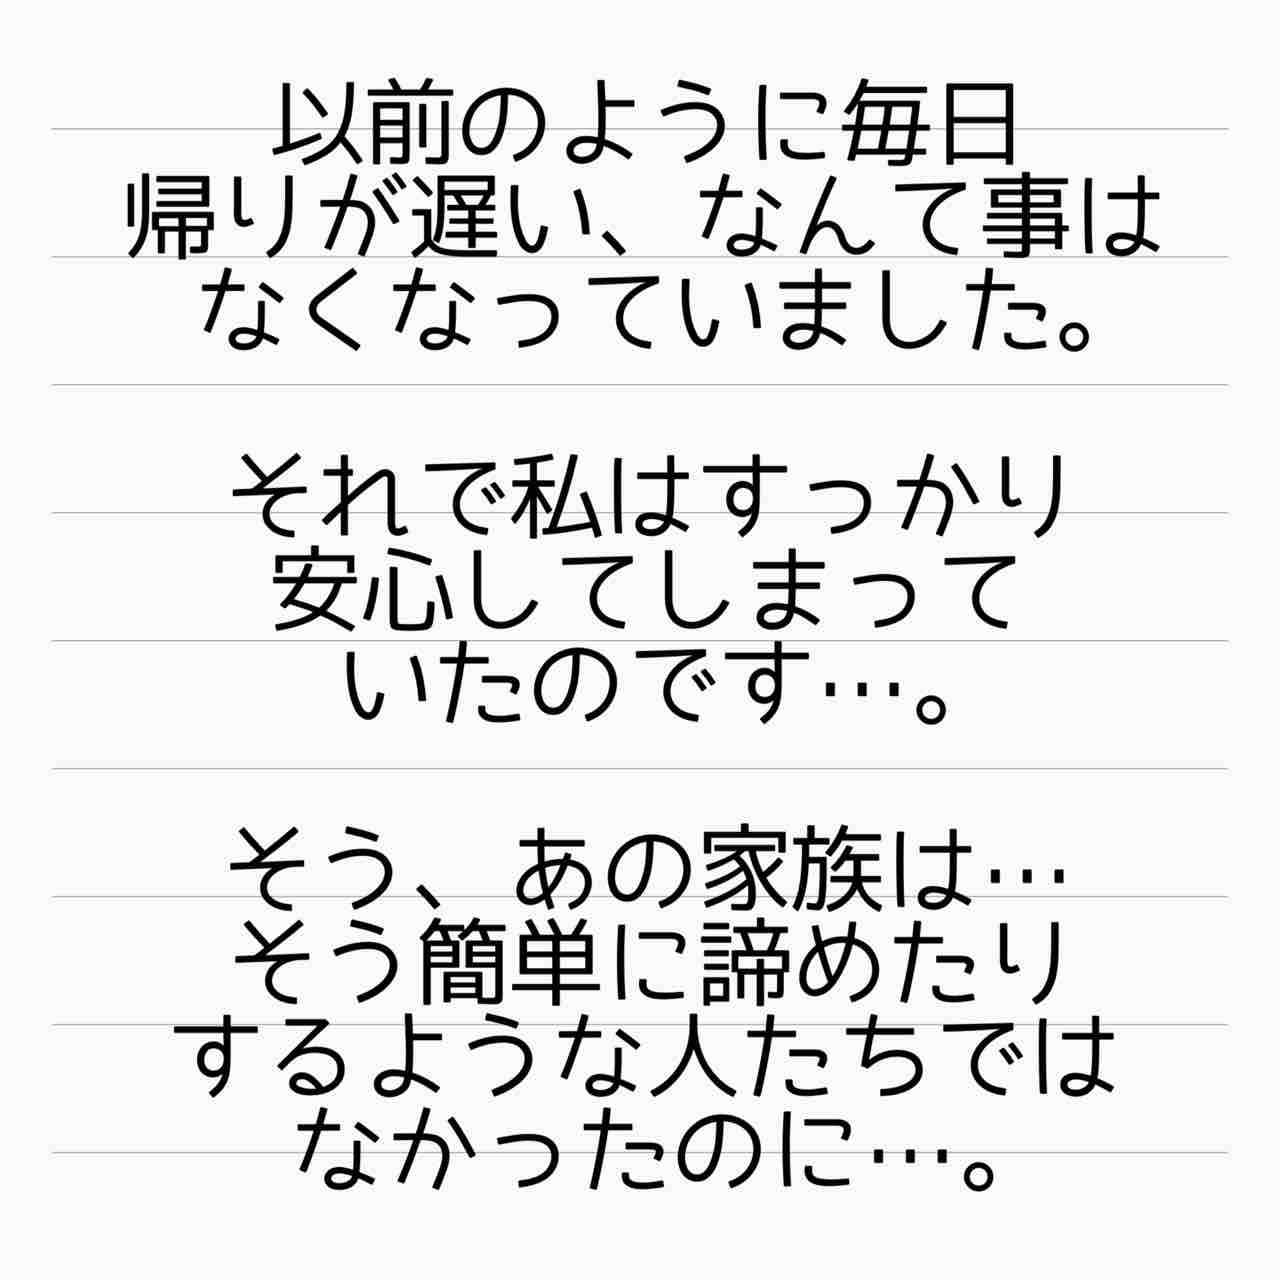 以前のように毎日
帰りが遅い、なんて事は
なくなっていました。
それで私はすっかり
安心してしまって
いたのです…。
そう、あの家族は…
そう簡単に諦めたり
するような人たちでは
なかったのに…。